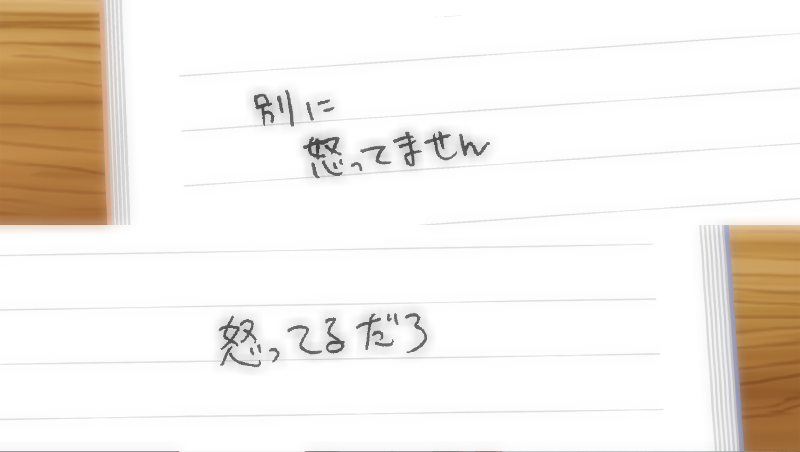 別に
怒ってません
怒ってるだろ